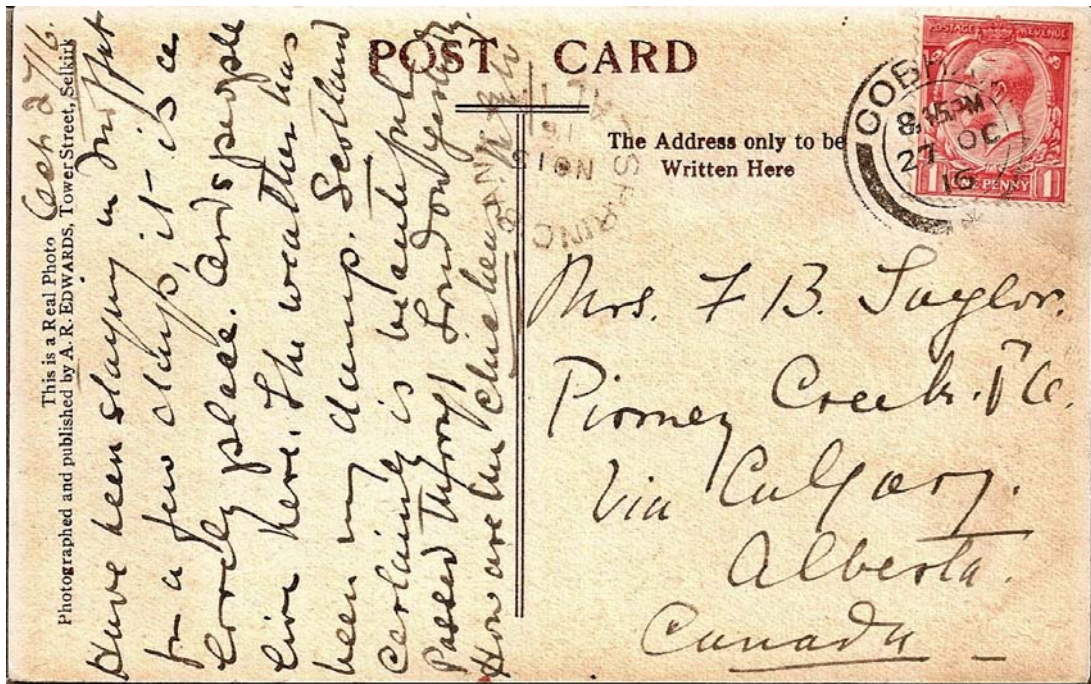 POST CARD
The Address only to be
Written Here
POSTAGE REVENUE
1 ONE PENNY 1
8.15 PM
27 OC
16
This is a Real Photo
Photographed and published by A. R. EDWARDS, Tower Street, Selkirk
Oct 27/16.
Have been staying in Moffat
for a few days, it is a
lovely place. Cards people
live here. The weather has
been very damp. Scotland
Certainly is beautiful
Passed through London yesterday.
How are the chickens
Mrs. F B. Taylor.
Pirmez Creek. P.O.
Via Calgary.
Alberta.
Canada